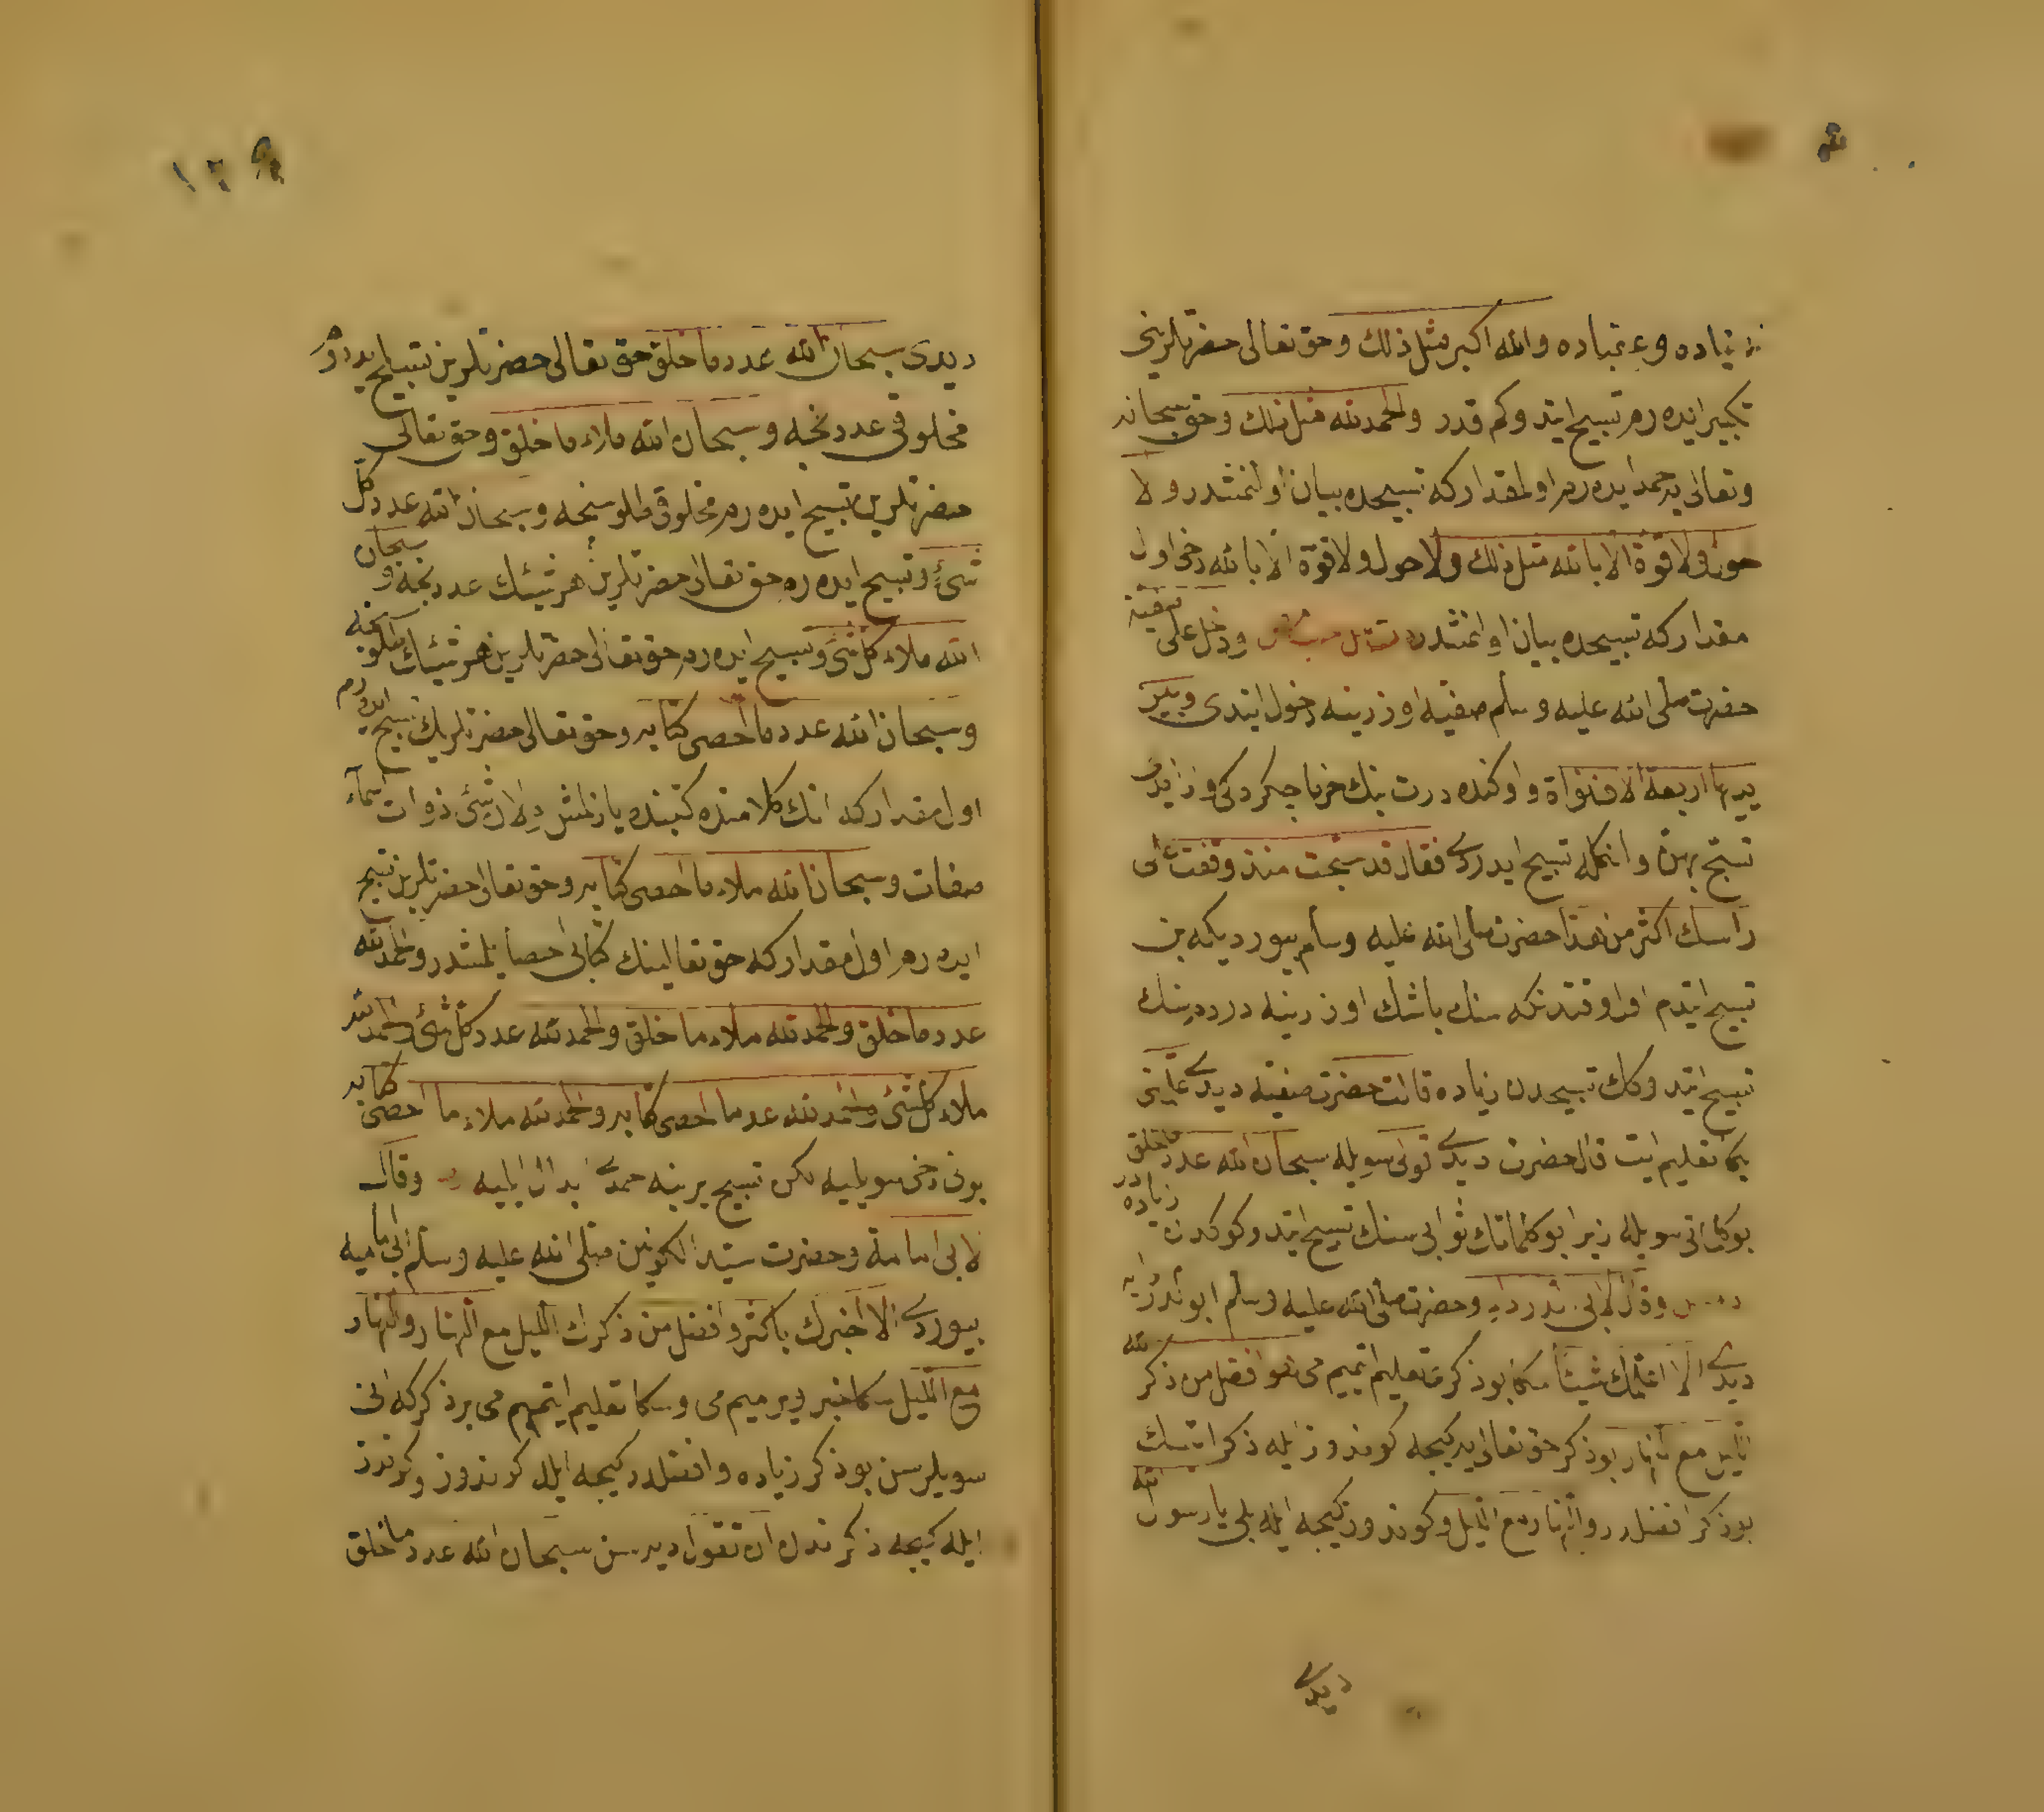 زياده و عبياده والله اكبر مثل ذلك وحق تعالى حضرتلرينى
تكبير ايده رم تسبيح ايتدوكم قدر والحمد لله مثل ذلك وحق سبحانه
وتعالى يه حمد ايده رم اولمقدار كه تسبيحده بيان اولنمشدر ولا
حول ولا قوة الا بالله مثل ذلك ولا حول ولا قوة الا بالله دخى اول
مقدار كه تسبيحده بيان اولنمشدر ودخل على صفية
حضرت صلى الله عليه وسلم صفيه اوزرينه دخول ايتدى وبين
يديها اربعة الاف نواة واوكنده درت بيك خرما چكردكى وار ايدى
تسبح بهن وانكله تسبيح ايدردى فقال قد سبحت منذ وقفت على
راسك اكثر من هذا حضرت صلى الله عليه وسلم بيورديكه بن
تسبيح ايتدم اول وقتدنكه سنك باشك اوزرينه دردم سنك
تسبيح ايتدوكك تسبيحدن زياده قالت حضرت صفيه ديدى علمنى
بكا تعليم ايت قال حضرت ديدى قولى سويله سبحان الله عدد ما خلق
بو كلماتى سويله زيرا بو كلماتك ثوابى سنك تسبيح ايتدوككدن زياده در
وقال لابى الدرداء وحضرت صلى الله عليه وسلم ابو الدردايه
ديدى الا اعلمك شيئا سكا بو ذكرى تعليم ايتميم مى هو افضل من ذكر الله
الليل مع النهار بو ذكر حق تعالى يه كيجه كوندوز ايله ذكر ايتمك
بو ذكر افضلدر والنهار مع الليل وكوندوز كيجه ايله بلى يا رسول الله
ديدى
١٢٩
ديدى سبحان الله عدد ما خلق حق تعالى حضرتلرين تسبيح ايدرم
مخلوقى عددنجه وسبحان الله ملاء ما خلق وحق تعالى
حضرتلرين تسبيح ايده رم مخلوقى طلوسنجه وسبحان الله عدد كل
شئ وتسبيح ايده رم حق تعالى حضرتلرين هر شيئك عددنجه وسبحان
الله ملاء كل شئ وتسبيح ايده رم حق تعالى حضرتلرين هر شيئك طلوسنجه
وسبحان الله عدد ما احصى كتابه وحق تعالى حضرتلرينك تسبيح ايده رم
اول مقدار كه انك كلامنده كتبنده يازلمش دلالى شئ ذوات اسماء
صفات وسبحان الله ملاء ما احصى كتابه وحق تعالى حضرتلرين تسبيح
ايده رم اول مقدار كه حق تعالينك كتابى احصا ايلمشدر والحمد لله
عدد ما خلق والحمد لله ملاء ما خلق والحمد لله عدد كل شئ والحمد لله
ملاء كل شئ والحمد لله عدد ما احصى كتابه والحمد لله ملاء ما احصى كتابه
بونى دخى سويليه لكن تسبيح يرينه حمدى بدل ايليه وقال
لابى امامة وحضرت سيد الكونين صلى الله عليه وسلم ابى امامه يه
بيوردى الا اخبرك باكثر وافضل من ذكرك الليل مع النهار والنهار
مع الليل سكا خبر ويرميم مى وسكا تعليم ايتميم مى بر ذكر كه انى
سويلرسن بو ذكر زياده وافضلدر كيجه ايله كوندوز وكوندوز
ايله كيجه ذكرندن ان تقول ديرسن سبحان الله عدد ما خلق